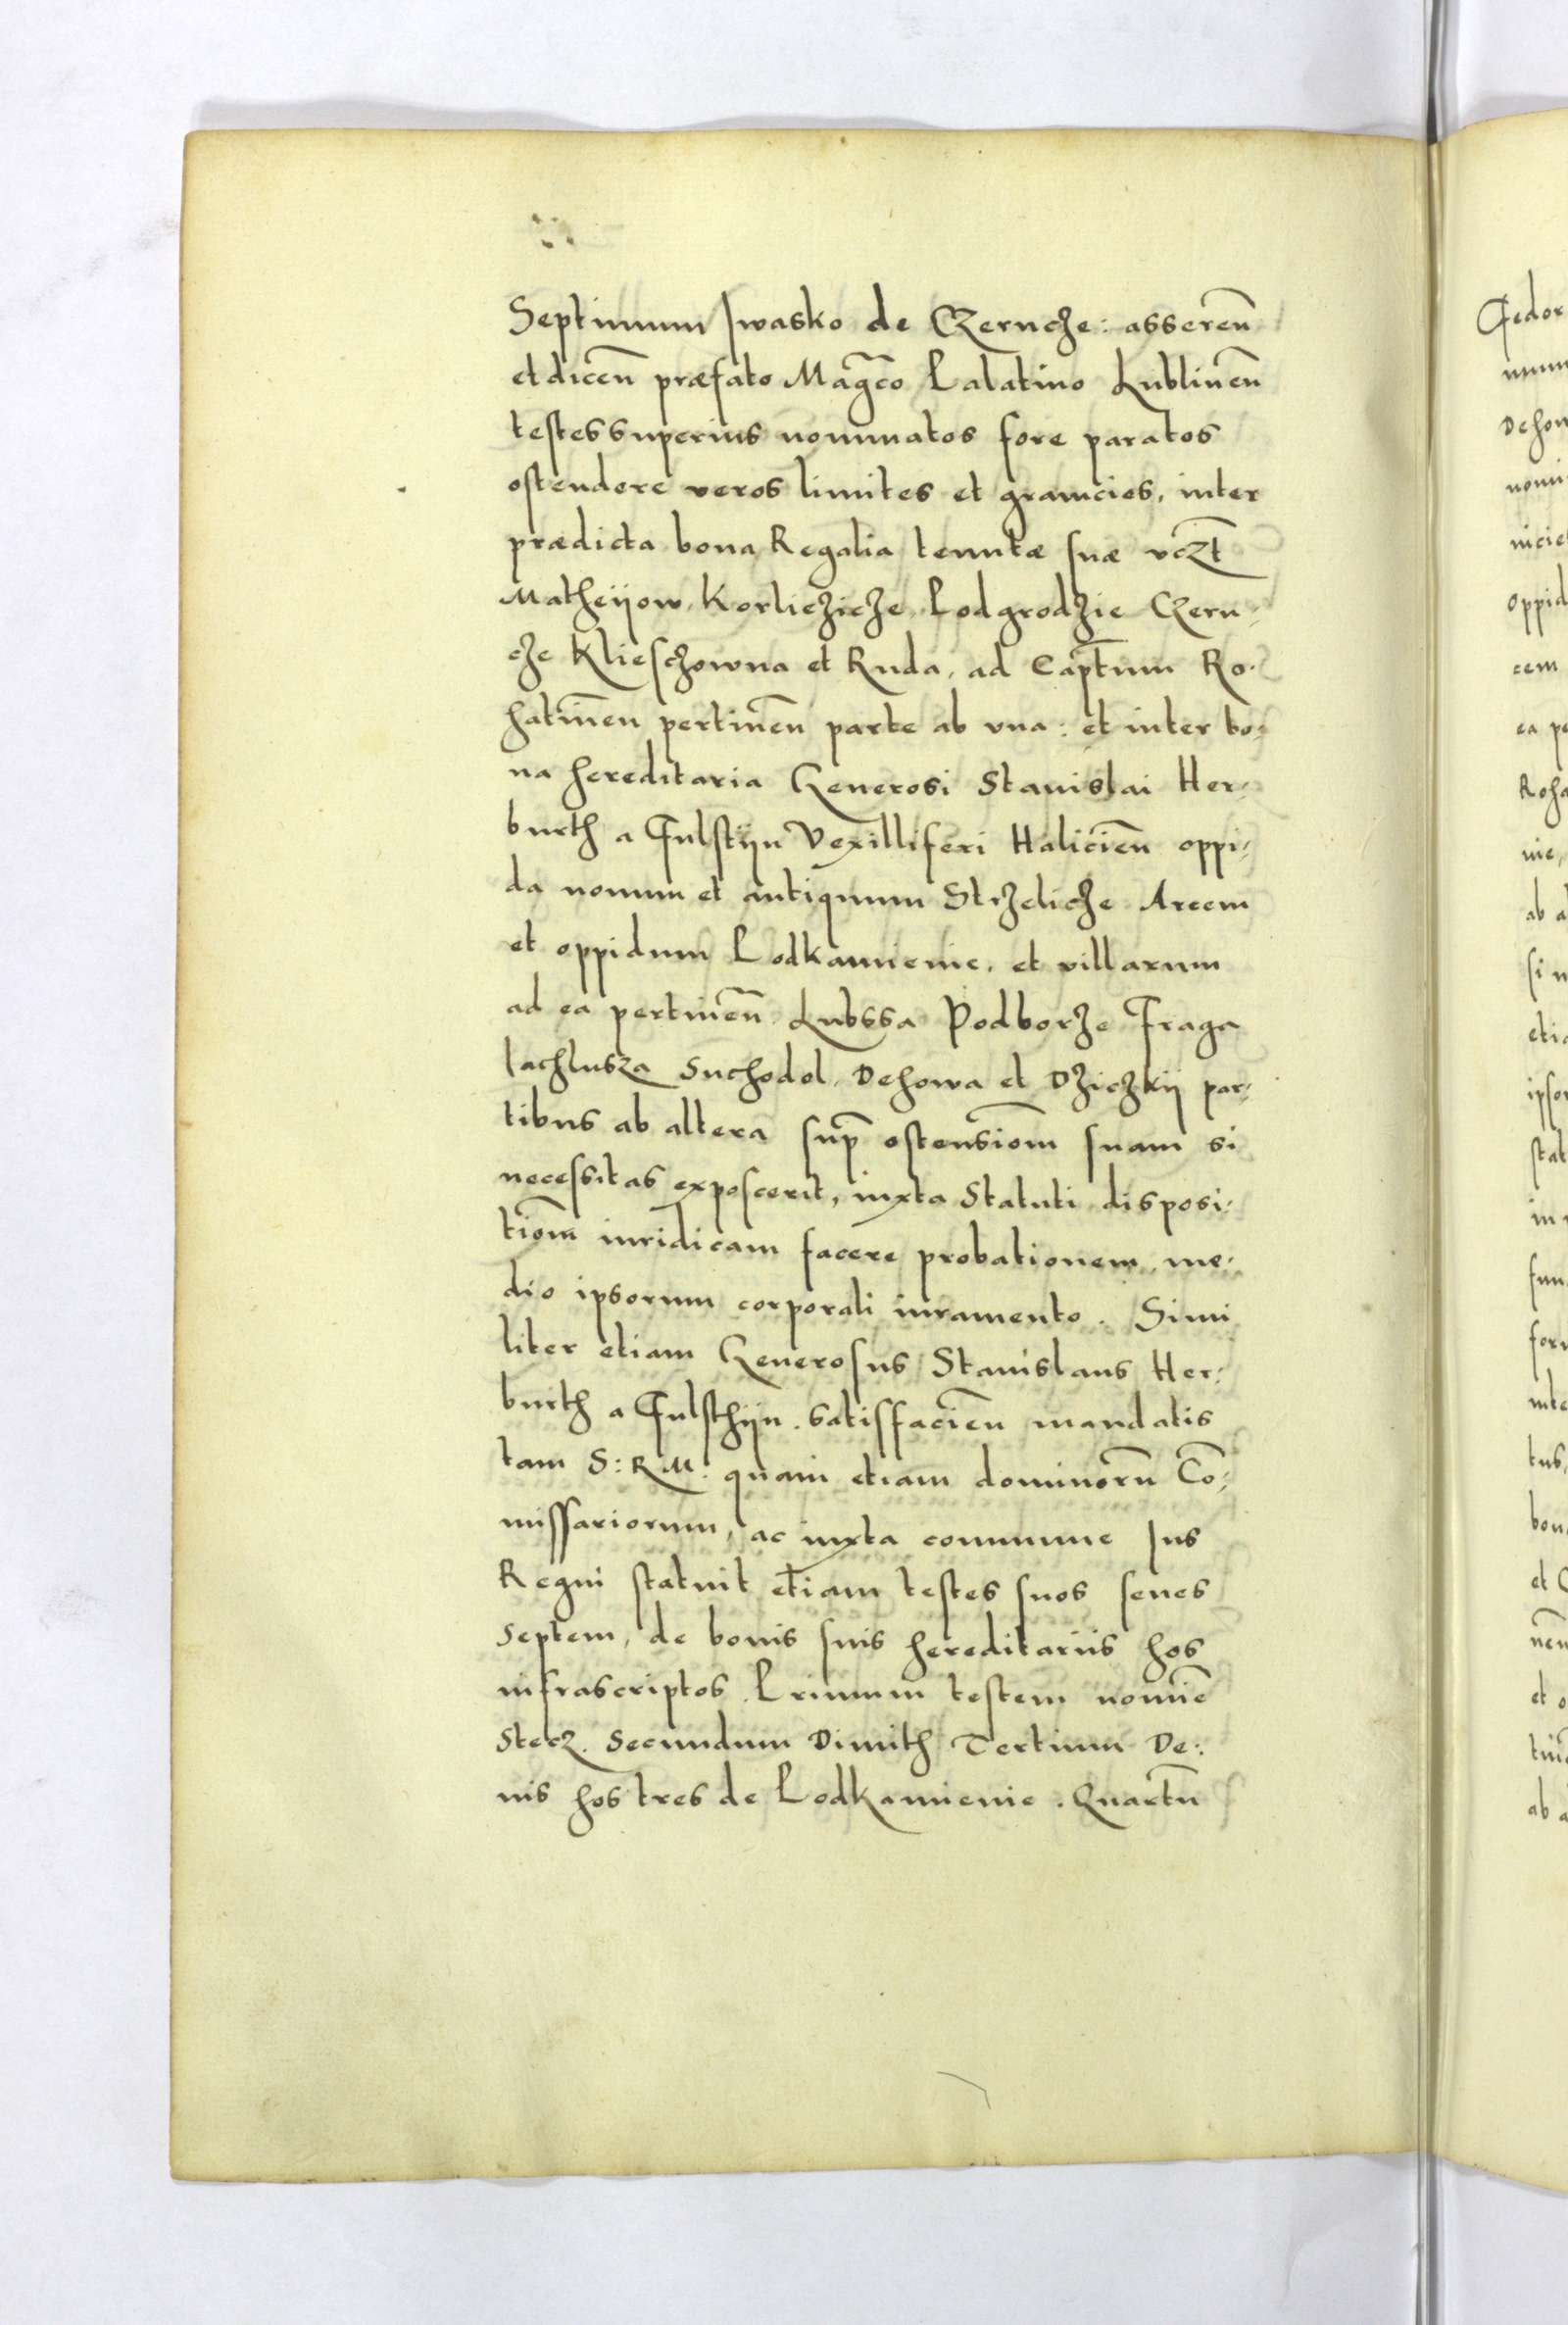 Septimum Iwasko de Czerncze: asserēn
et dicēn præfato Magc̄o Palatino Lublinēn
testes superius nominatos fore paratos
ostendere veros limites et granicies, inter
prædicta bona Regalia tenutæ suæ vcz̄t
Matheyow, Korliczicze, Podgrodzie Czern-
cze Klieschowna et Ruda, ad Capt̄um Ro-
hatinēn pertinēn parte ab vna: et inter bo-
na hereditaria Generosi Stanislai Her-
burth a Fulstijn Vexilliferi Haliciēn oppi-
da nouum et antiquum Strzelicze Arcem
et oppidum Podkamienie, et villarum
ad ea pertinēn Lubssa Podborze Fraga
lachlusza Suchodol, Dehowa et Dziczkij par-
tibus ab altera sup̄ ostensiōm suam si
necessitas exposcerit, iuxta Statuti disposi-
tiōm iuridicam facere probationem, me-
dio ipsorum corporali iuramento. Simi
liter etiam Generosus Stanislaus Her-
burth a Fulsthijn satisfaciēn mandatis
tam S: R M: quam etiam dominorū Cō-
missariorum, ac iuxta commune Ius
Regni statuit etiam testes suos senes
Septem, de bonis suis hereditariis hos
infrascriptos. Primum testem nomīe
Stecz. Secundum Dimith Tertium De-
nis hos tres de Podkamienie. Quartū
Fedor
Dehow
oppid
cem
ea pe
Roha
nie,
ab a
si n
etia
ipsor
stat
in
inte
tus,
bon
et
et o
ab a